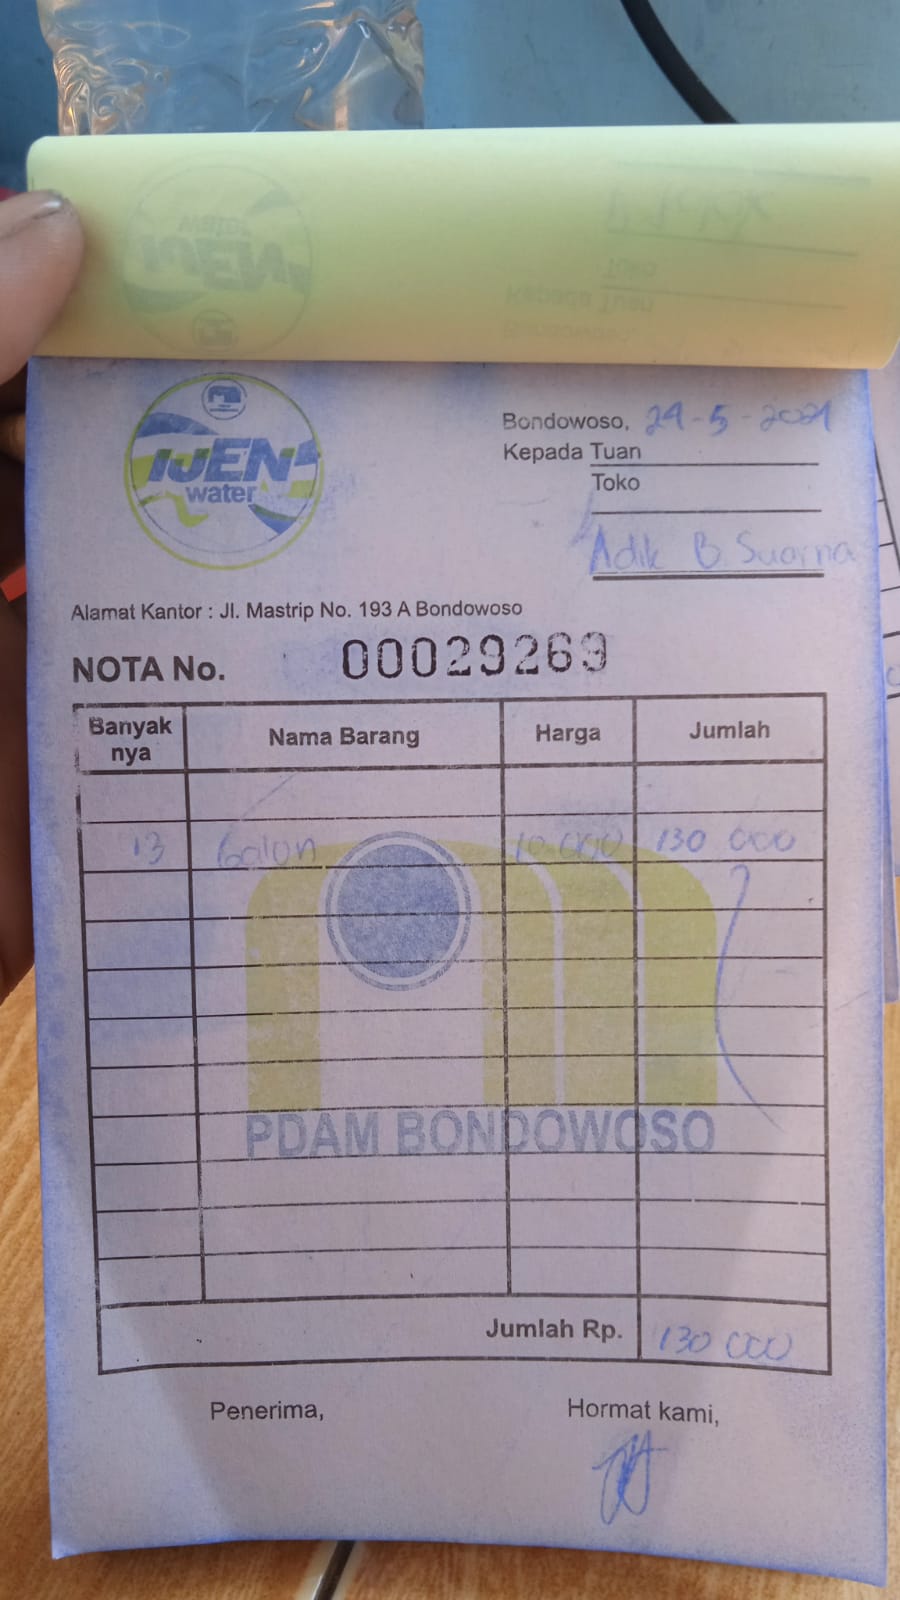 IJEN
water
Bondowoso, 29-5-2021
Kepada Tuan
Toko
Adik B Suarna
Alamat Kantor : Jl. Mastrip No. 193 A Bondowoso
NOTA No. 00029269
Banyak nya Nama Barang Harga Jumlah
13 Galon 10 000 130 000
PDAM BONDOWOSO
Jumlah Rp. 130 000
Penerima, Hormat kami,